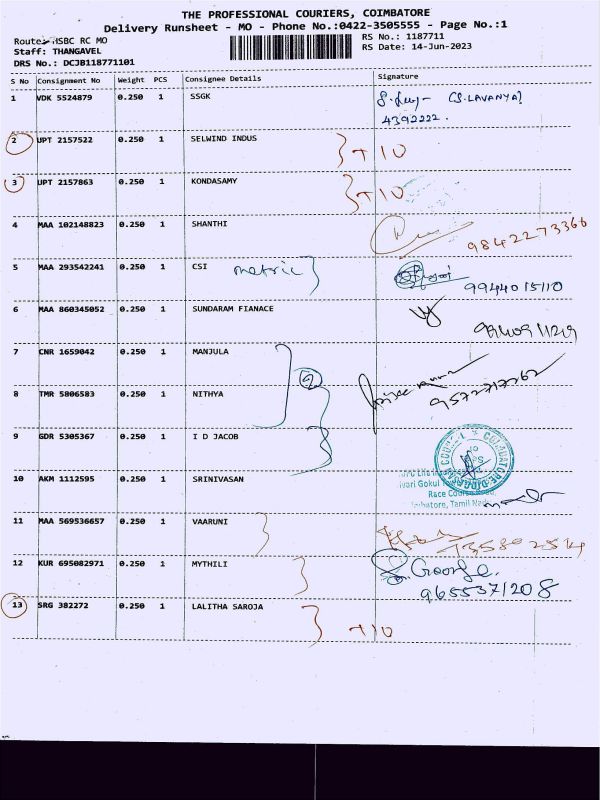 THE PROFESSIONAL COURIERS, COIMBATORE
Delivery Runsheet - MO - Phone No.:0422-3505555 - Page No.:1
Route: HSBC RC MO
RS No.: 1187711
Staff: THANGAVEL
RS Date: 14-Jun-2023
DRS No.: DCJB118771101
S No Consignment No Weight PCS Consignee Details Signature
1 VDK 5524879 0.250 1 SSGK (S.LAVANYA)
4392222.
2 UPT 2157522 0.250 1 SELWIND INDUS +10
3 UPT 2157863 0.250 1 KONDASAMY +10
4 MAA 102148823 0.250 1 SHANTHI 9842273366
5 MAA 293542241 0.250 1 CSI metric 9944015110
6 MAA 860345052 0.250 1 SUNDARAM FIANACE
7 CNR 1659042 0.250 1 MANJULA
8 TMR 5806583 0.250 1 NITHYA
9 GDR 5305367 0.250 1 I D JACOB
10 AKM 1112595 0.250 1 SRINIVASAN
Gokul
Race Course Road,
Tamil Nadu
11 MAA 569536657 0.250 1 VAARUNI
12 KUR 695082971 0.250 1 MYTHILI George.
9655371208
13 SRG 382272 0.250 1 LALITHA SAROJA +10